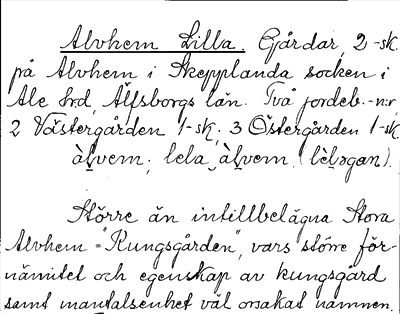 Alvhem Lilla. Gårdar, 2-sk.
på Alvhem i Skepplanda socken i
Ale hd, Älfsborgs län. Två jordeb.-n:r,
2 Västergården 1-sk, 3 Östergården 1-sk.
àl̬vem, lela àl̬vem (lèl̬əgan).
Större än intillbelägna Stora
Alvhem "Kungsgården", vars större för-
nämitet och egenskap av kungsgård
samt mantalsenhet väl orsakat namnen.